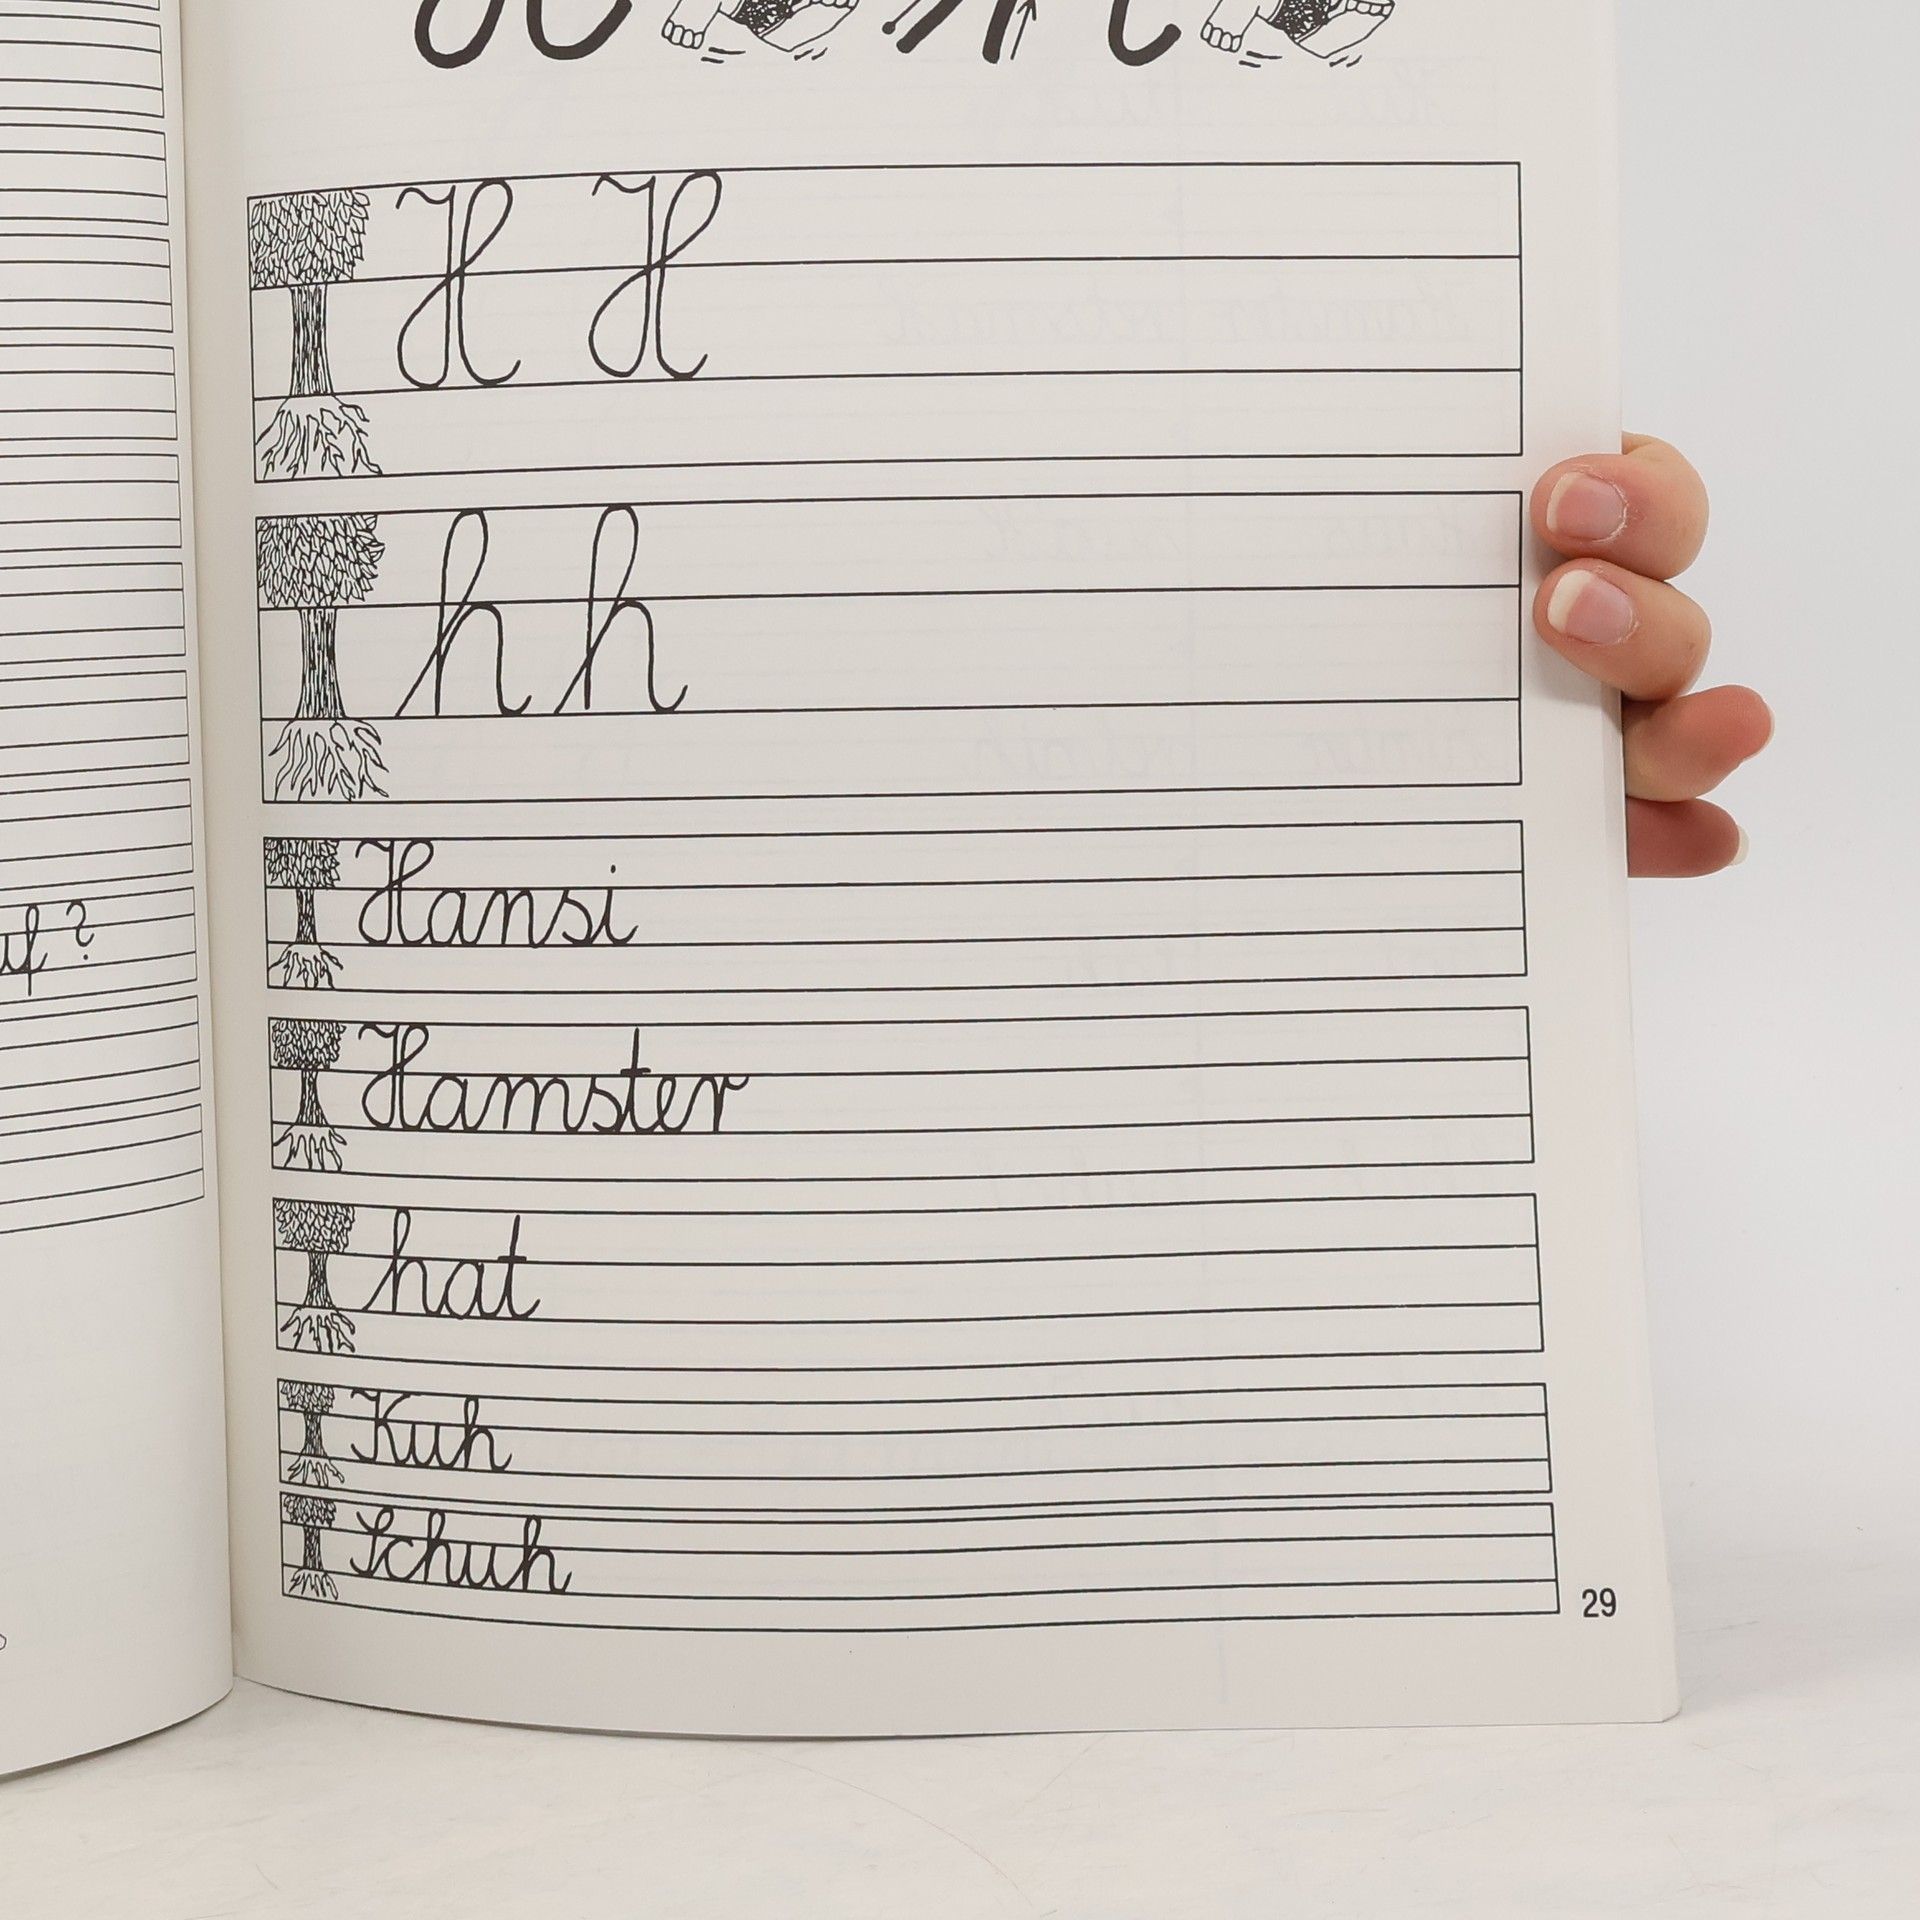 H h
H H
h h
Hansi
Hamster
hat
Kuh
Schuh
29